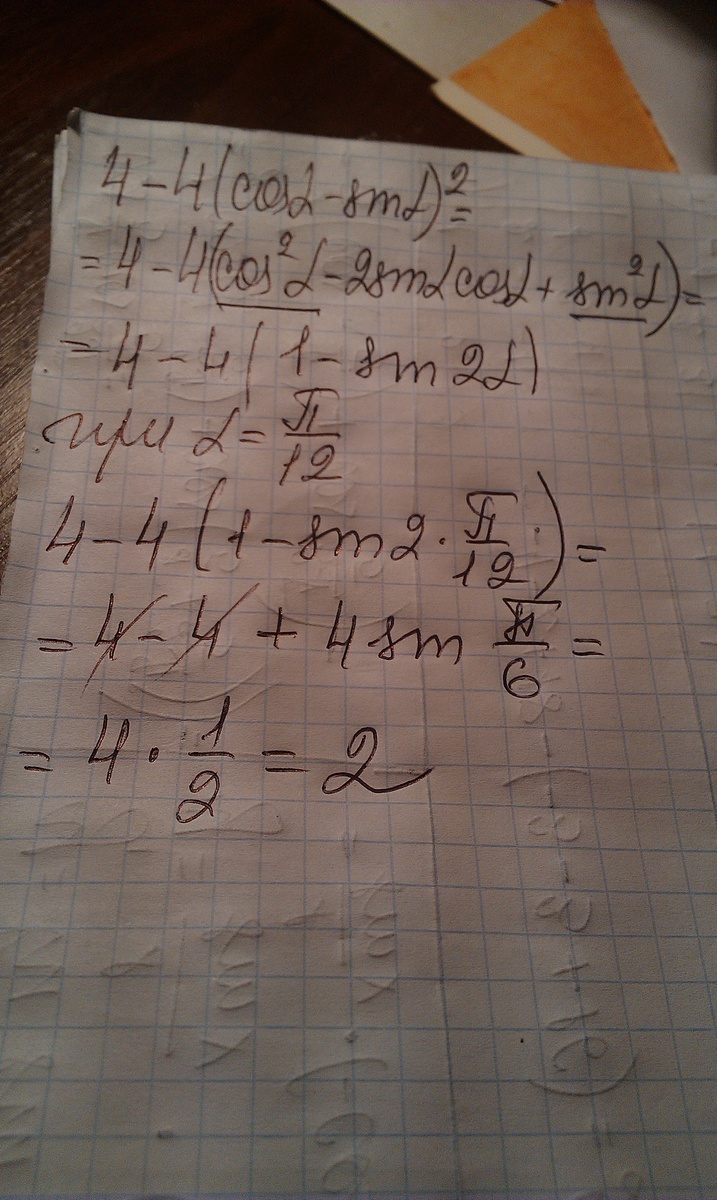 4 - 4(cosα - sinα)² =
= 4 - 4(cos²α - 2sinαcosα + sin²α) =
= 4 - 4(1 - sin 2α)
при α = π/12
4 - 4(1 - sin 2 · π/12) =
= 4 - 4 + 4 sin π/6 =
= 4 · 1/2 = 2